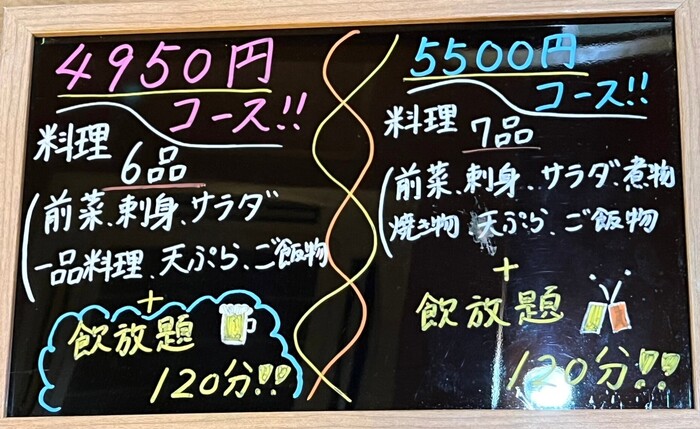 4950円
コース!!
料理
6品
(前菜、刺身、サラダ
一品料理、天ぷら、ご飯物
+
飲放題
120分!!
5500円
コース!!
料理 7品
(前菜、刺身、サラダ、煮物
焼き物、天ぷら、ご飯物
+
飲放題
120分!!